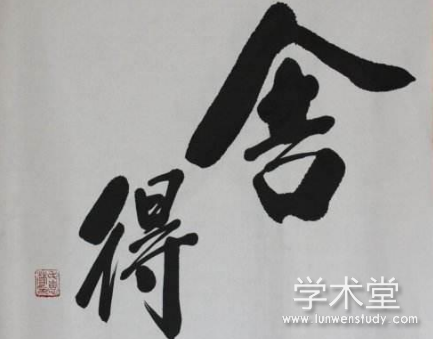 舍
得
学术堂
www.lunwenstudy.com